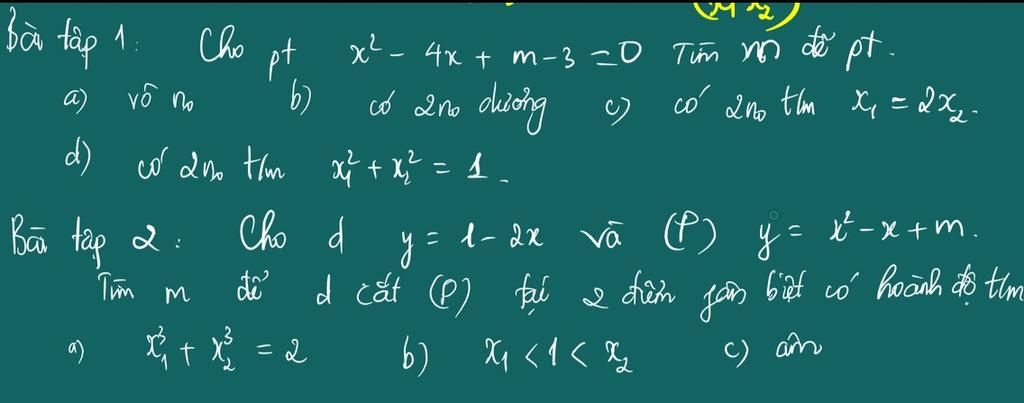 (x₁ x₂)
Bài tập 1: Cho pt x² - 4x + m - 3 = 0 Tìm m để pt.
a) vô no b) có 2no dương c) có 2no tlm x₁ = 2x₂.
d) có 2no tlm x₁² + x₂² = 1.
Bài tập 2: Cho d y = 1 - 2x và (P) y = x² - x + m.
Tìm m để d cắt (P) tại 2 điểm phân biệt có hoành độ tlm
a) x₁³ + x₂³ = 2 b) x₁ < 1 < x₂ c) âm